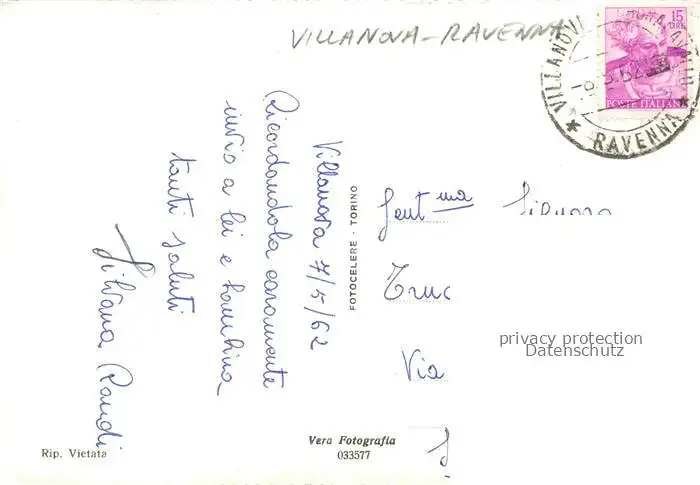 VILLANOVA-RAVENNA
15
LIRE
POSTE ITALIANE
RAVENNA
Villanova 7/5/62
Ricordandola caramente
invio a lei e bambina
tanti saluti
Silvana Randi
FOTOCELERE - TORINO
Gent.ma Signora
Via
privacy protection
Datenschutz
Vera Fotografia
033577
Rip. Vietata